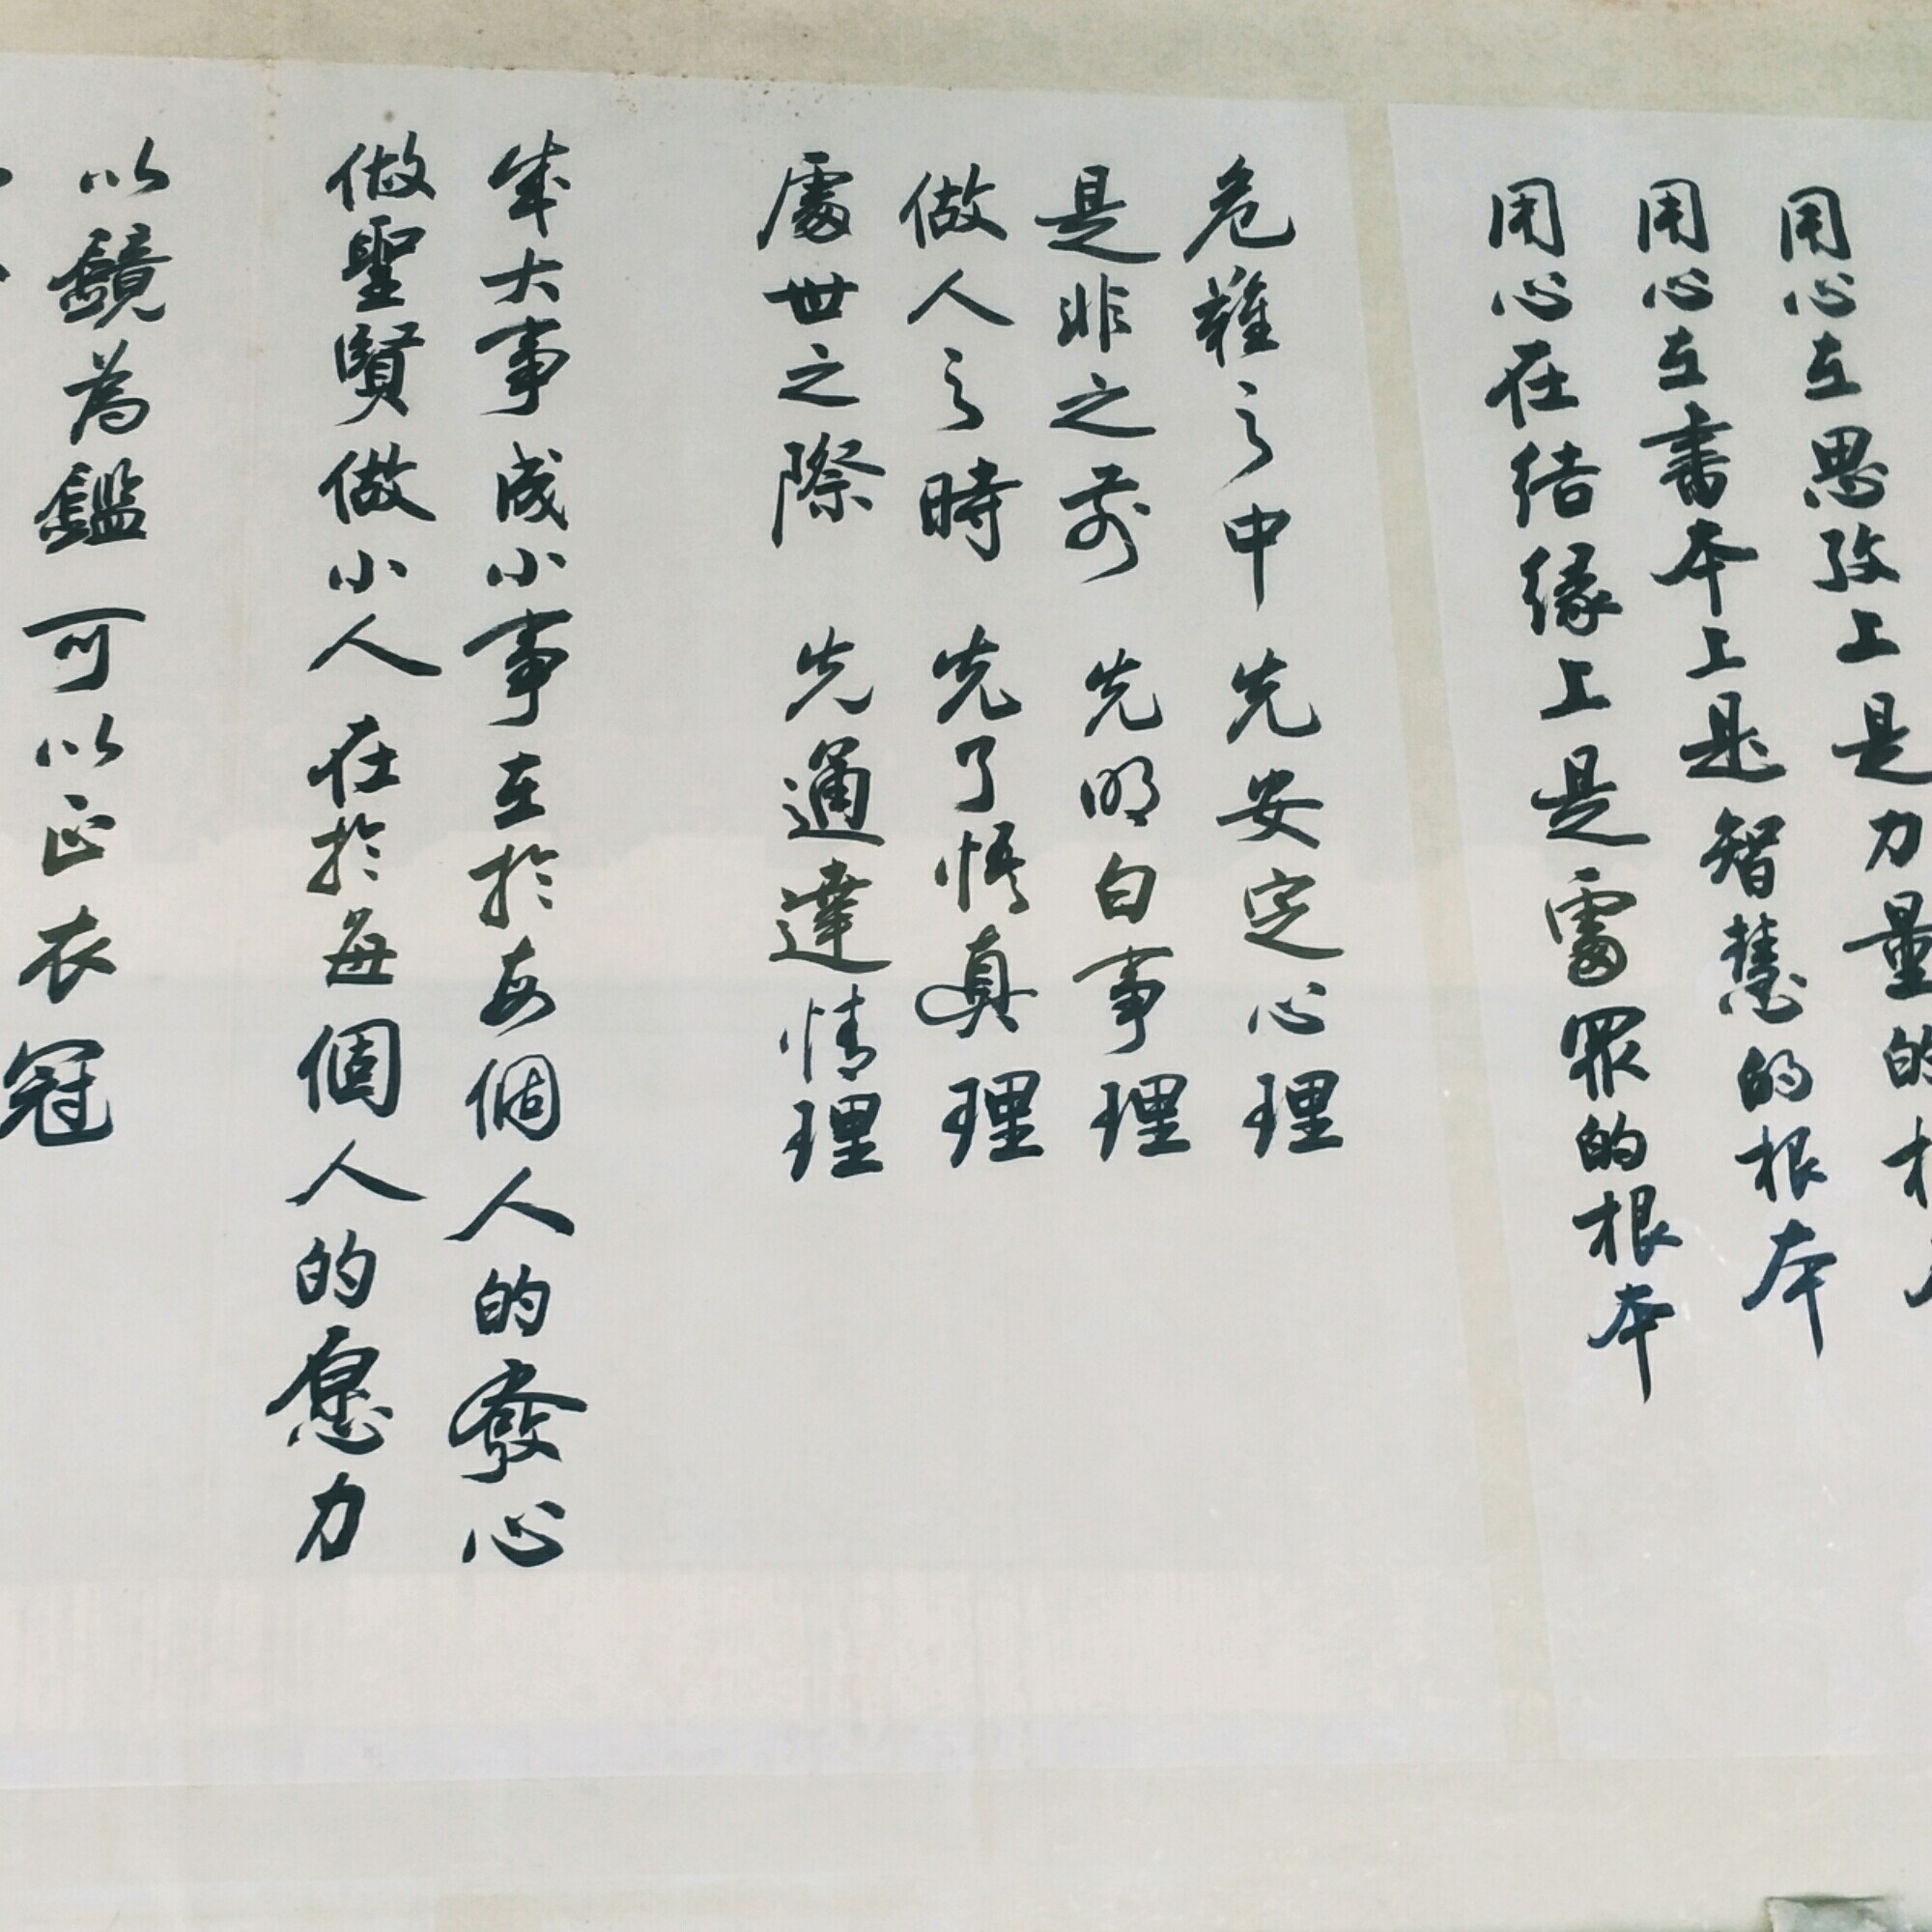 用心在思攷上是力量的
用心在書本上是智慧的根本
用心在结缘上是處眾的根本
危難之中 先安定心理
是非之前 先明白事理
做人之時 先了悟真理
處世之際 先通達情理
成大事成小事在於每個人的發心
做聖賢做小人 在於每個人的愿力
以鏡為鑑 可以正衣冠